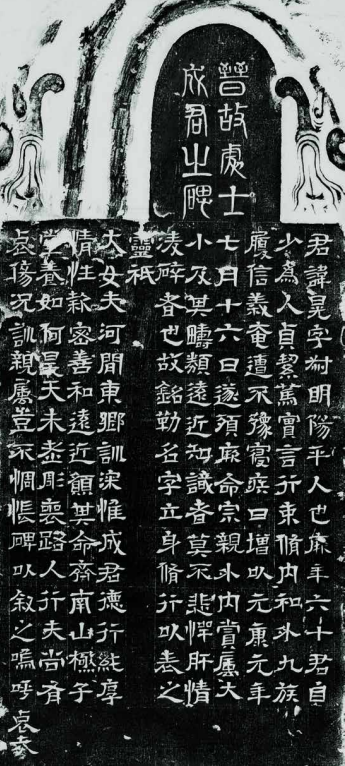 晉故處士
成君之碑
君諱晃字叔明陽平人也年六十君自
少為人貞絜篤實言行束脩內和外九族
履信義奄遭不豫寢疾日增以元康元年
七月十六日遂殞厥命宗親外內賓屬大
小及其疇類遠近知識者莫不悲悼肝情
淩碎者也故銘勒名字立身脩行以表之
靈祇
大女夫河間東鄉訓深惟成君德行純享
情性款密善和遠近願其命齊南山極子
堂養如何昊天未老彫喪路人行夫尚有
哀傷況訓親屬豈不惆悵碑以敘之嗚呼哀哉